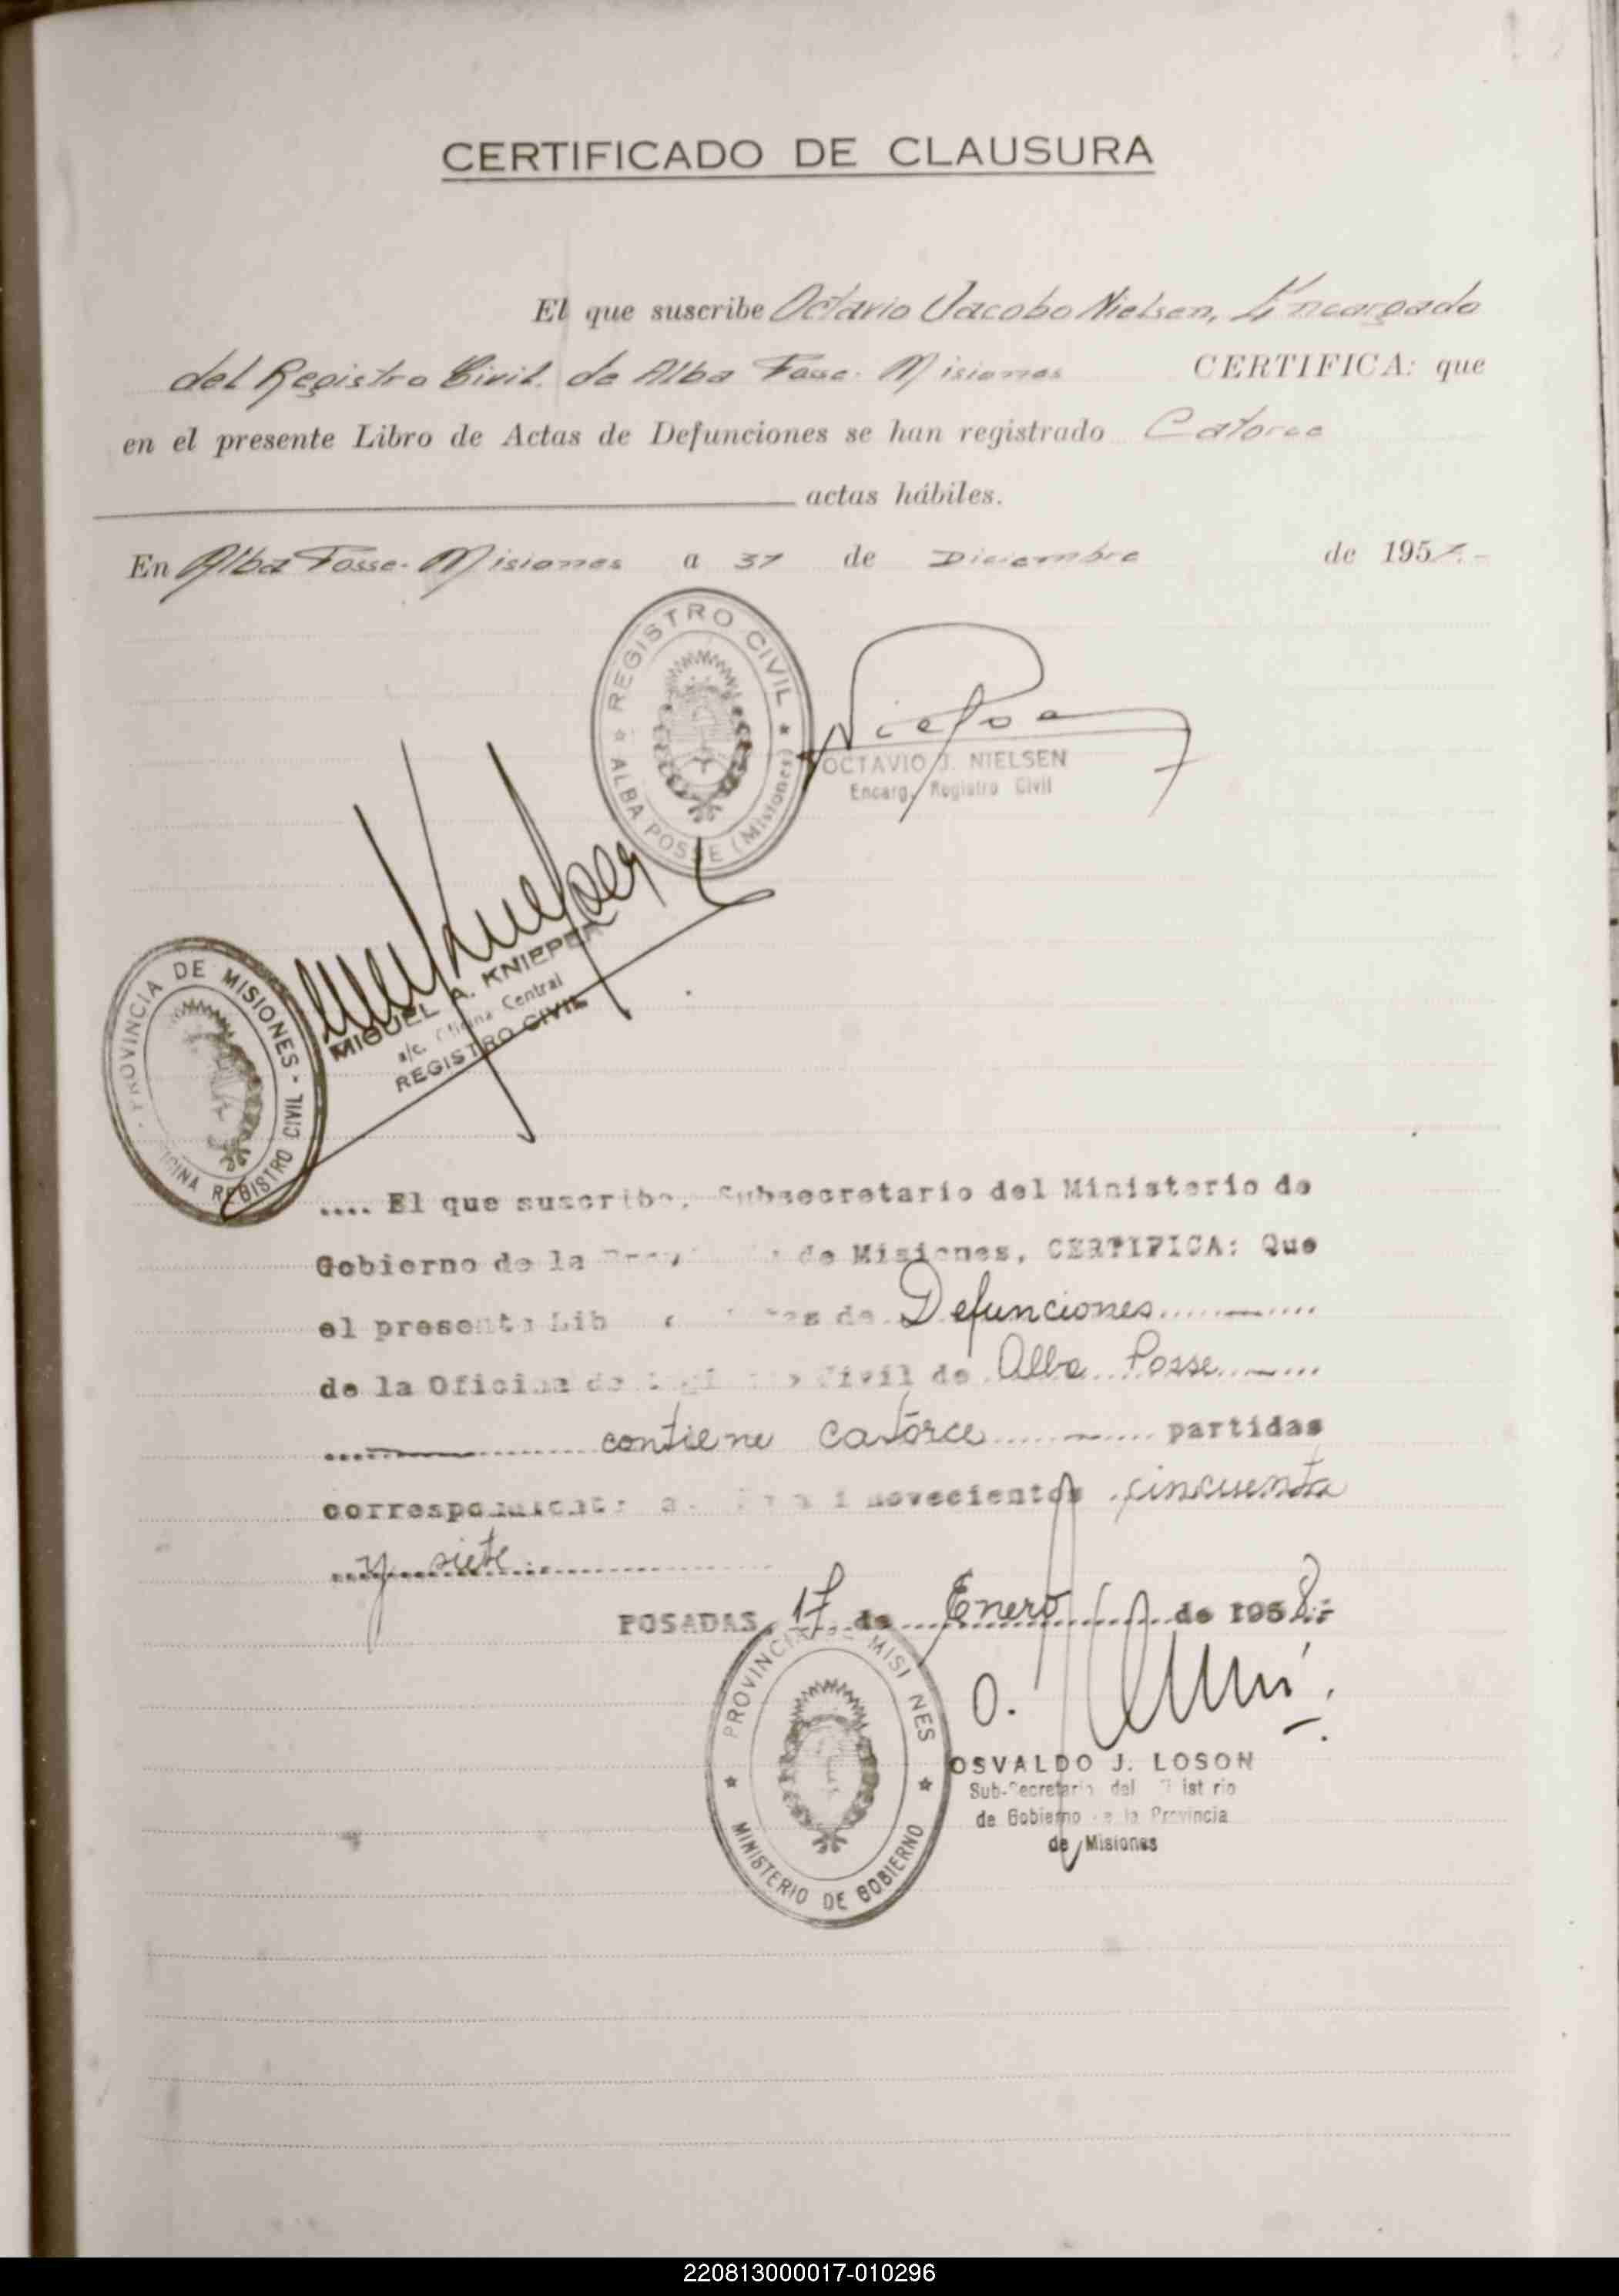 CERTIFICADO DE CLAUSURA
El que suscribe Octavio Jacobo Nielsen, Encargado
del Registro Civil de Alba Posse - Misiones CERTIFICA: que
en el presente Libro de Actas de Defunciones se han registrado Catorce
actas hábiles.
En Alba Posse - Misiones a 31 de Diciembre de 1957.-
REGISTRO CIVIL
ALBA POSSE (Misiones)
Nielsen
OCTAVIO J. NIELSEN
Encarg. Registro Civil
MIGUEL A. KNIEPER
a/c. Oficina Central
REGISTRO CIVIL
PROVINCIA DE MISIONES - OFICINA REGISTRO CIVIL
.... El que suscribe, Subsecretario del Ministerio de
Gobierno de la de Misiones, CERTIFICA: Que
el presente Lib de Defunciones
de la Oficina de Civil de Alba Posse
contiene catorce partidas
novecientos cincuenta
y siete
POSADAS, 17 de Enero de 1958.-
PROVINCIA DE MISIONES
MINISTERIO DE GOBIERNO
OSVALDO J. LOSON
Sub-Secretario del
de Gobierno de la Provincia
de Misiones
220813000017-010296